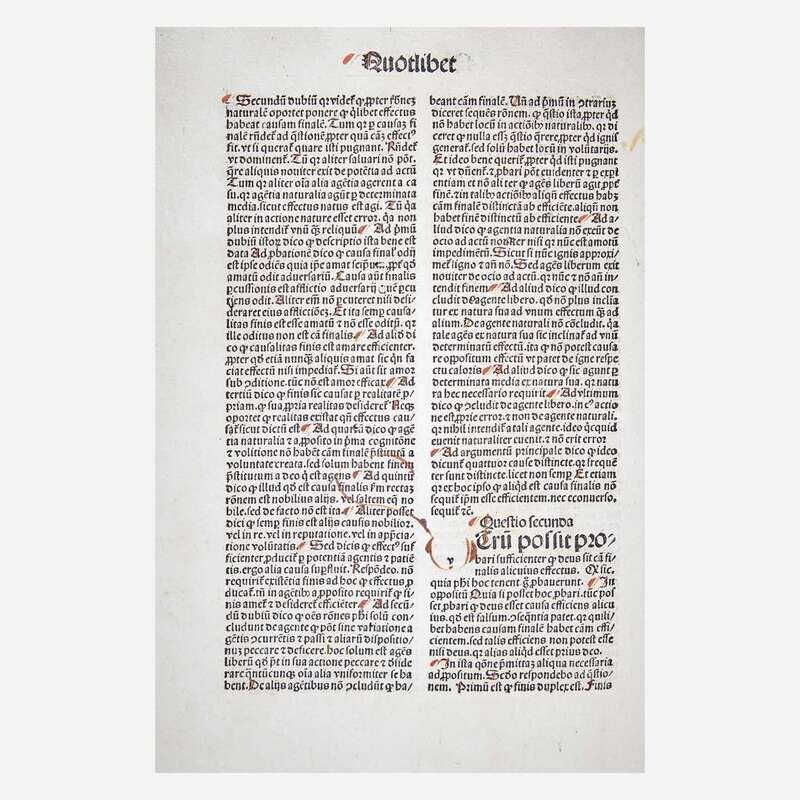 Quotlibet
Secundū dubiū qꝛ videt̄ ꝙ ꝓpter fīnē
naturalē oportet ponere ꝙ q̄libet effectus
habeat causam finalē. Tum qꝛ ꝑ causaʒ fi
nalē rn̄det̄ ad q̄stionē ꝓpter quā cāʒ effect̄
fit. vt si querat̄ quare isti pugnant. Rn̄det̄
vt dominent̄. Tū qꝛ aliter saluari nō pōt.
q̄re aliquis nouiter exit de potētia ad actū
Tum qꝛ aliter oīa alia agētia agerent a ca
su. qꝛ agētia naturalia agūt ꝑ determinata
media. sicut effectus natus est agi. Tū qꝛ
aliter in actione nature esset error. qꝛ non
plus intendit̄ vnū qꝫ reliquū Ad p̄mū
dubiū istoꝝ dico ꝙ descriptio ista bene est
data Ad ꝓbationē dico ꝙ causa final̓ odij
est ipse odiēs quia ip̄e amat seip̄ꝫ ꝓpter qd̓
amatū odit aduersariū. Causa aūt finalis
ꝑcussionis est afflictio aduersarij quē ꝑcu
tiens odit. Aliter eīm nō ꝑcuteret nisi desi
deraret eius afflictiōeʒ. Et ita semꝑ causa
litas finis est esse amatū ⁊ nō esse oditꝫ. qꝛ
ille oditus non est cā finalis Ad aliō di
co ꝙ causalitas finis est amare efficienter.
ꝓpter qd̓ etiā nunqꝫ aliquis amat sic qn̄ fa
ciat effectū nisi impediat̄. Si aūt sit amor
sub ꝯditione. tūc nō est amor efficax Ad
tertiū dico ꝙ finis sic causat ꝑ realitatē ꝓ
priam. ꝙ sua ꝓpria realitas desiderat̄. Neqꝫ
oportet ꝙ realitas existat qn̄ effectus cau
sat̄ sicut dictū est Ad quartū dico ꝙ agē
tia naturalia ⁊ a ꝓposito in p̄ma cognitōne
⁊ volitione nō habēt cām finalē p̄stitutā a
voluntate creata. sed solum habent finem
p̄stitutum a deo q̄ est agens Ad quintū
dico ꝙ illud qd̓ est causa finalis ẜm rectaʒ
rōnem est nobilius alijs. vel saltem eq̄ no
bile. sed de facto nō est ita Aliter posset
dici ꝙ semꝑ finis est alijs causis nobilior.
vel in re. vel in reputatione. vel in app̄cia
tione volūtatis Sed dicis ꝙ effect̄ suf
ficienter ꝓducit̄ ꝑ potentiā agentis ⁊ patiē
tis. ergo alia causa suꝑfluit. Respōdeo. nō
requirit̄ existētia finis ad hoc ꝙ effectus ꝓ
ducat̄. tn̄ in agētib̄ a ꝓposito requirit̄ ꝙ fi
nis amet̄ ⁊ desideret̄ efficiēter Ad secū
dū dubiū dico ꝙ oēs rōnes ph̄i solū con
cludunt de agente ꝙ pōt sine variatione a
gētis ꝯcurrētis ⁊ passi ⁊ aliarū dispositio
nuʒ peccare ⁊ deficere. hoc solum est agēs
liberū qd̓ pōt in sua actione peccare ⁊ difide
rare q̄ntūcunqꝫ oīa alia vniformiter se ha
bent. De alijs agētibus nō ꝯcludūt ꝙ ha-
beant cām finalē. Un̄ ad p̄mū in ꝯtrariuʒ
diceret sequēs rōnem. ꝙ q̄stio ista. ꝓpter qd̓
nō habet locū in actiōib̄ naturalib̄. qꝛ di
ceret ꝙ nulla est q̄stio q̄rere. ꝓpter qd̓ ignis
generat̄. sed solū habet locū in volūtarijs.
Et ideo bene querit̄. ꝓpter qd̓ isti pugnant
qꝛ vt dn̄ent̄. ⁊ ꝓbari pōt euidenter ꝛ ꝑ exp̄i
entiam et nō aliter ꝙ agēs liberū agit ꝓpt̄
finē. ⁊ in talib̄ actiōib̄ aliqn̄ effectus habʒ
cām finalē distinctā ab efficiēte. aliqn̄ non
habet finē distinctū ab efficiente Ad a-
liud dico ꝙ agentia naturalia nō exeūt de
ocio ad actū noviter nisi qꝛ nūc est amotū
impedimētū. Sicut si nūc ignis approxi-
met̄ ligno ⁊ añ nō. Sed agēs liberum exit
nouiter de ocio ad actū. qꝛ nūc ⁊ nō añ in-
tendit finem Ad aliud dico ꝙ illud con
cludit de agente libero. qd̓ nō plus inclīa
tur ex natura sua ad vnum effectum qꝫ ad
alium. De agente naturali nō cōcludit. qꝛ
tale agēs ex natura sua sic inclinat̄ ad vnū
determinatū effectū. ita ꝙ nō potest causa
re oppositum effectū vt patet de igne respe
ctu caloris Ad aliud dico ꝙ sic agunt ꝑ
determinata media ex natura sua. qꝛ natu
ra hec necessario requirit Ad vltimum
dico ꝙ ꝯcludit de agente libero. in cꝰ actio
ne est ꝓprie error. ⁊ non de agente naturali.
qꝛ nihil intendit̄ a tali agente. ideo qd̓cūqꝫ
euenit naturaliter euenit. ⁊ nō erit error
Ad argumentū principale dico ꝙ ideo
dicunt̄ quattuor cause distincte. qꝛ frequē
ter sunt distincte. licet non semꝑ Et etiam
qꝛ ex hoc ipso ꝙ aliqd̓ est causa finalis nō
sequit̄ ip̄m esse efficientem. nec econuerso.
sequit̄ ꝛc̄.
Questio secunda
Trū possit pro-
v
bari sufficienter ꝙ deus sit cā fi-
nalis alicuius effectus. Qꝫ sic.
quia ph̄i hoc tenent ꝗ ꝓbauerunt. In
oppositū Quia si posset hoc ꝓbari. tūc pos
set ꝓbari ꝙ deus esset causa efficiens alicu
ius. qd̓ est falsum. ꝯseq̄ntia patet. qꝛ quili-
bet habens causam finalē habet cām effici-
entem. sed talis efficiens non potest esse
nisi deus. qꝛ alias aliqd̓ esset prius deo.
In ista qōne p̄mittaʒ aliqua necessaria
ad ꝓpositum. Scd̓o respondebo ad q̄stio-
nem. Primū est ꝙ finis duplex est. Finis